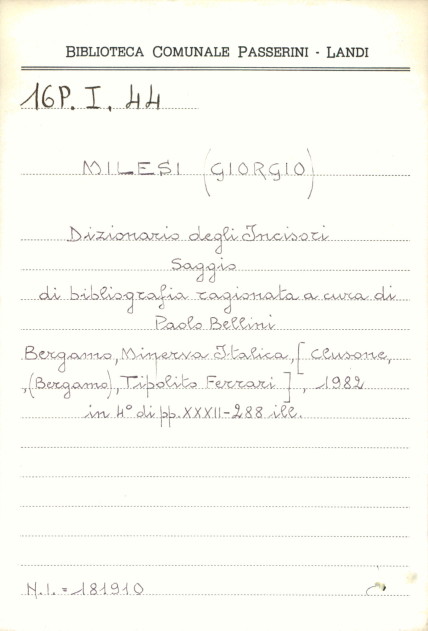 BIBLIOTECA COMUNALE PASSERINI - LANDI
16P. I. 44
MILESI (GIORGIO)
Dizionario degli Incisori
Saggio
di bibliografia ragionata a cura di
Paolo Bellini
Bergamo, Minerva Italica, [Clusone,
,(Bergamo), Tipolito Ferrari], 1982
in 4° di pp. XXXII-288 ill.
N.I. = 181910